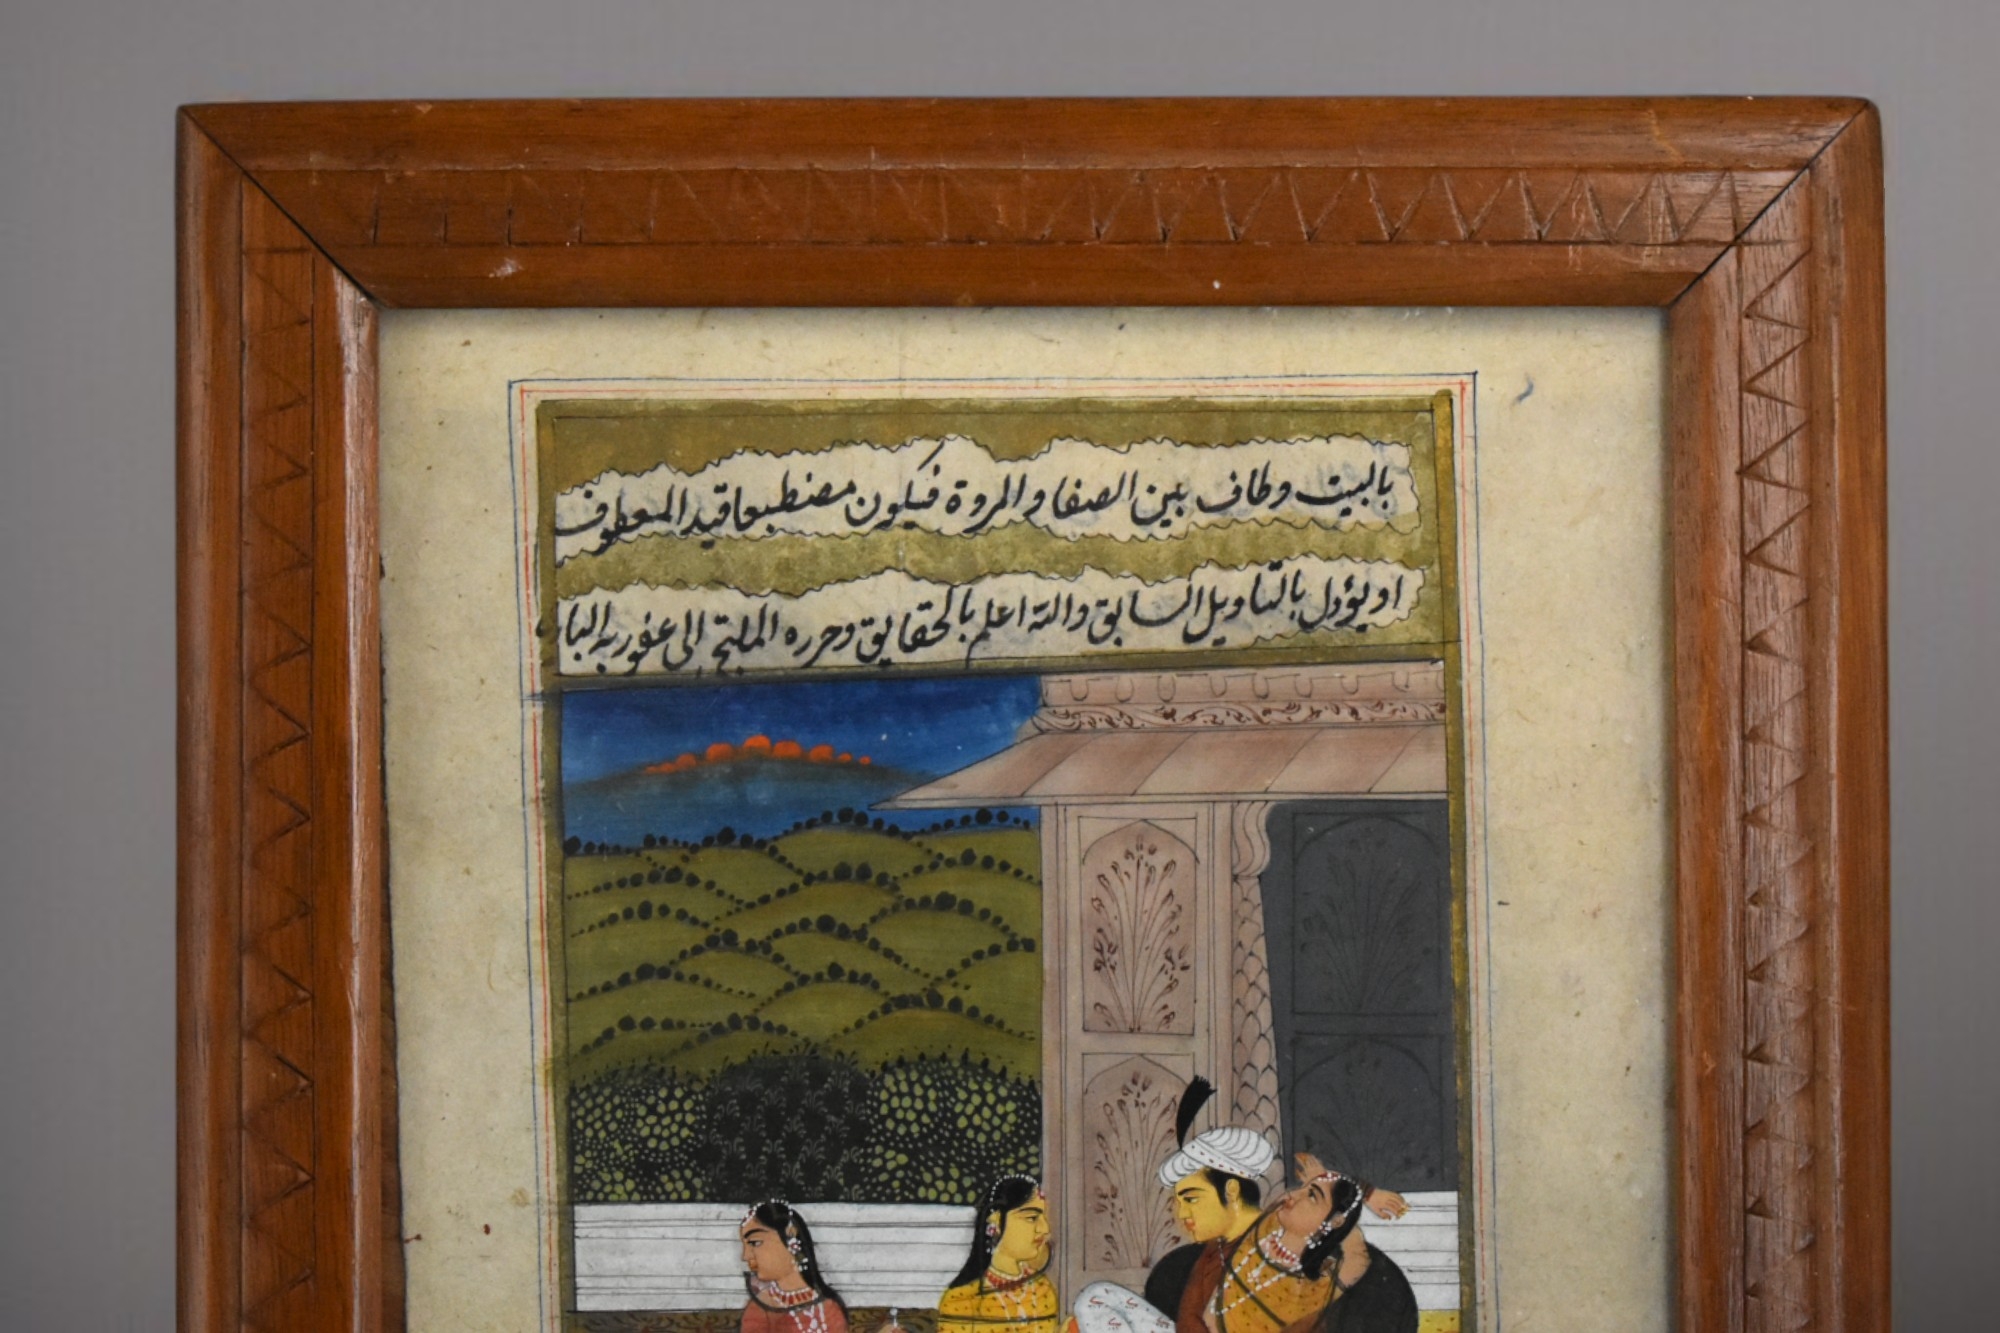 بالبيت وطاف بين الصفا والمروة فيكون مضطبعا قيد المعطوف
او يؤول بالتاويل السابق والله اعلم بالحقايق وحرره الملتجي الى عفو ربه